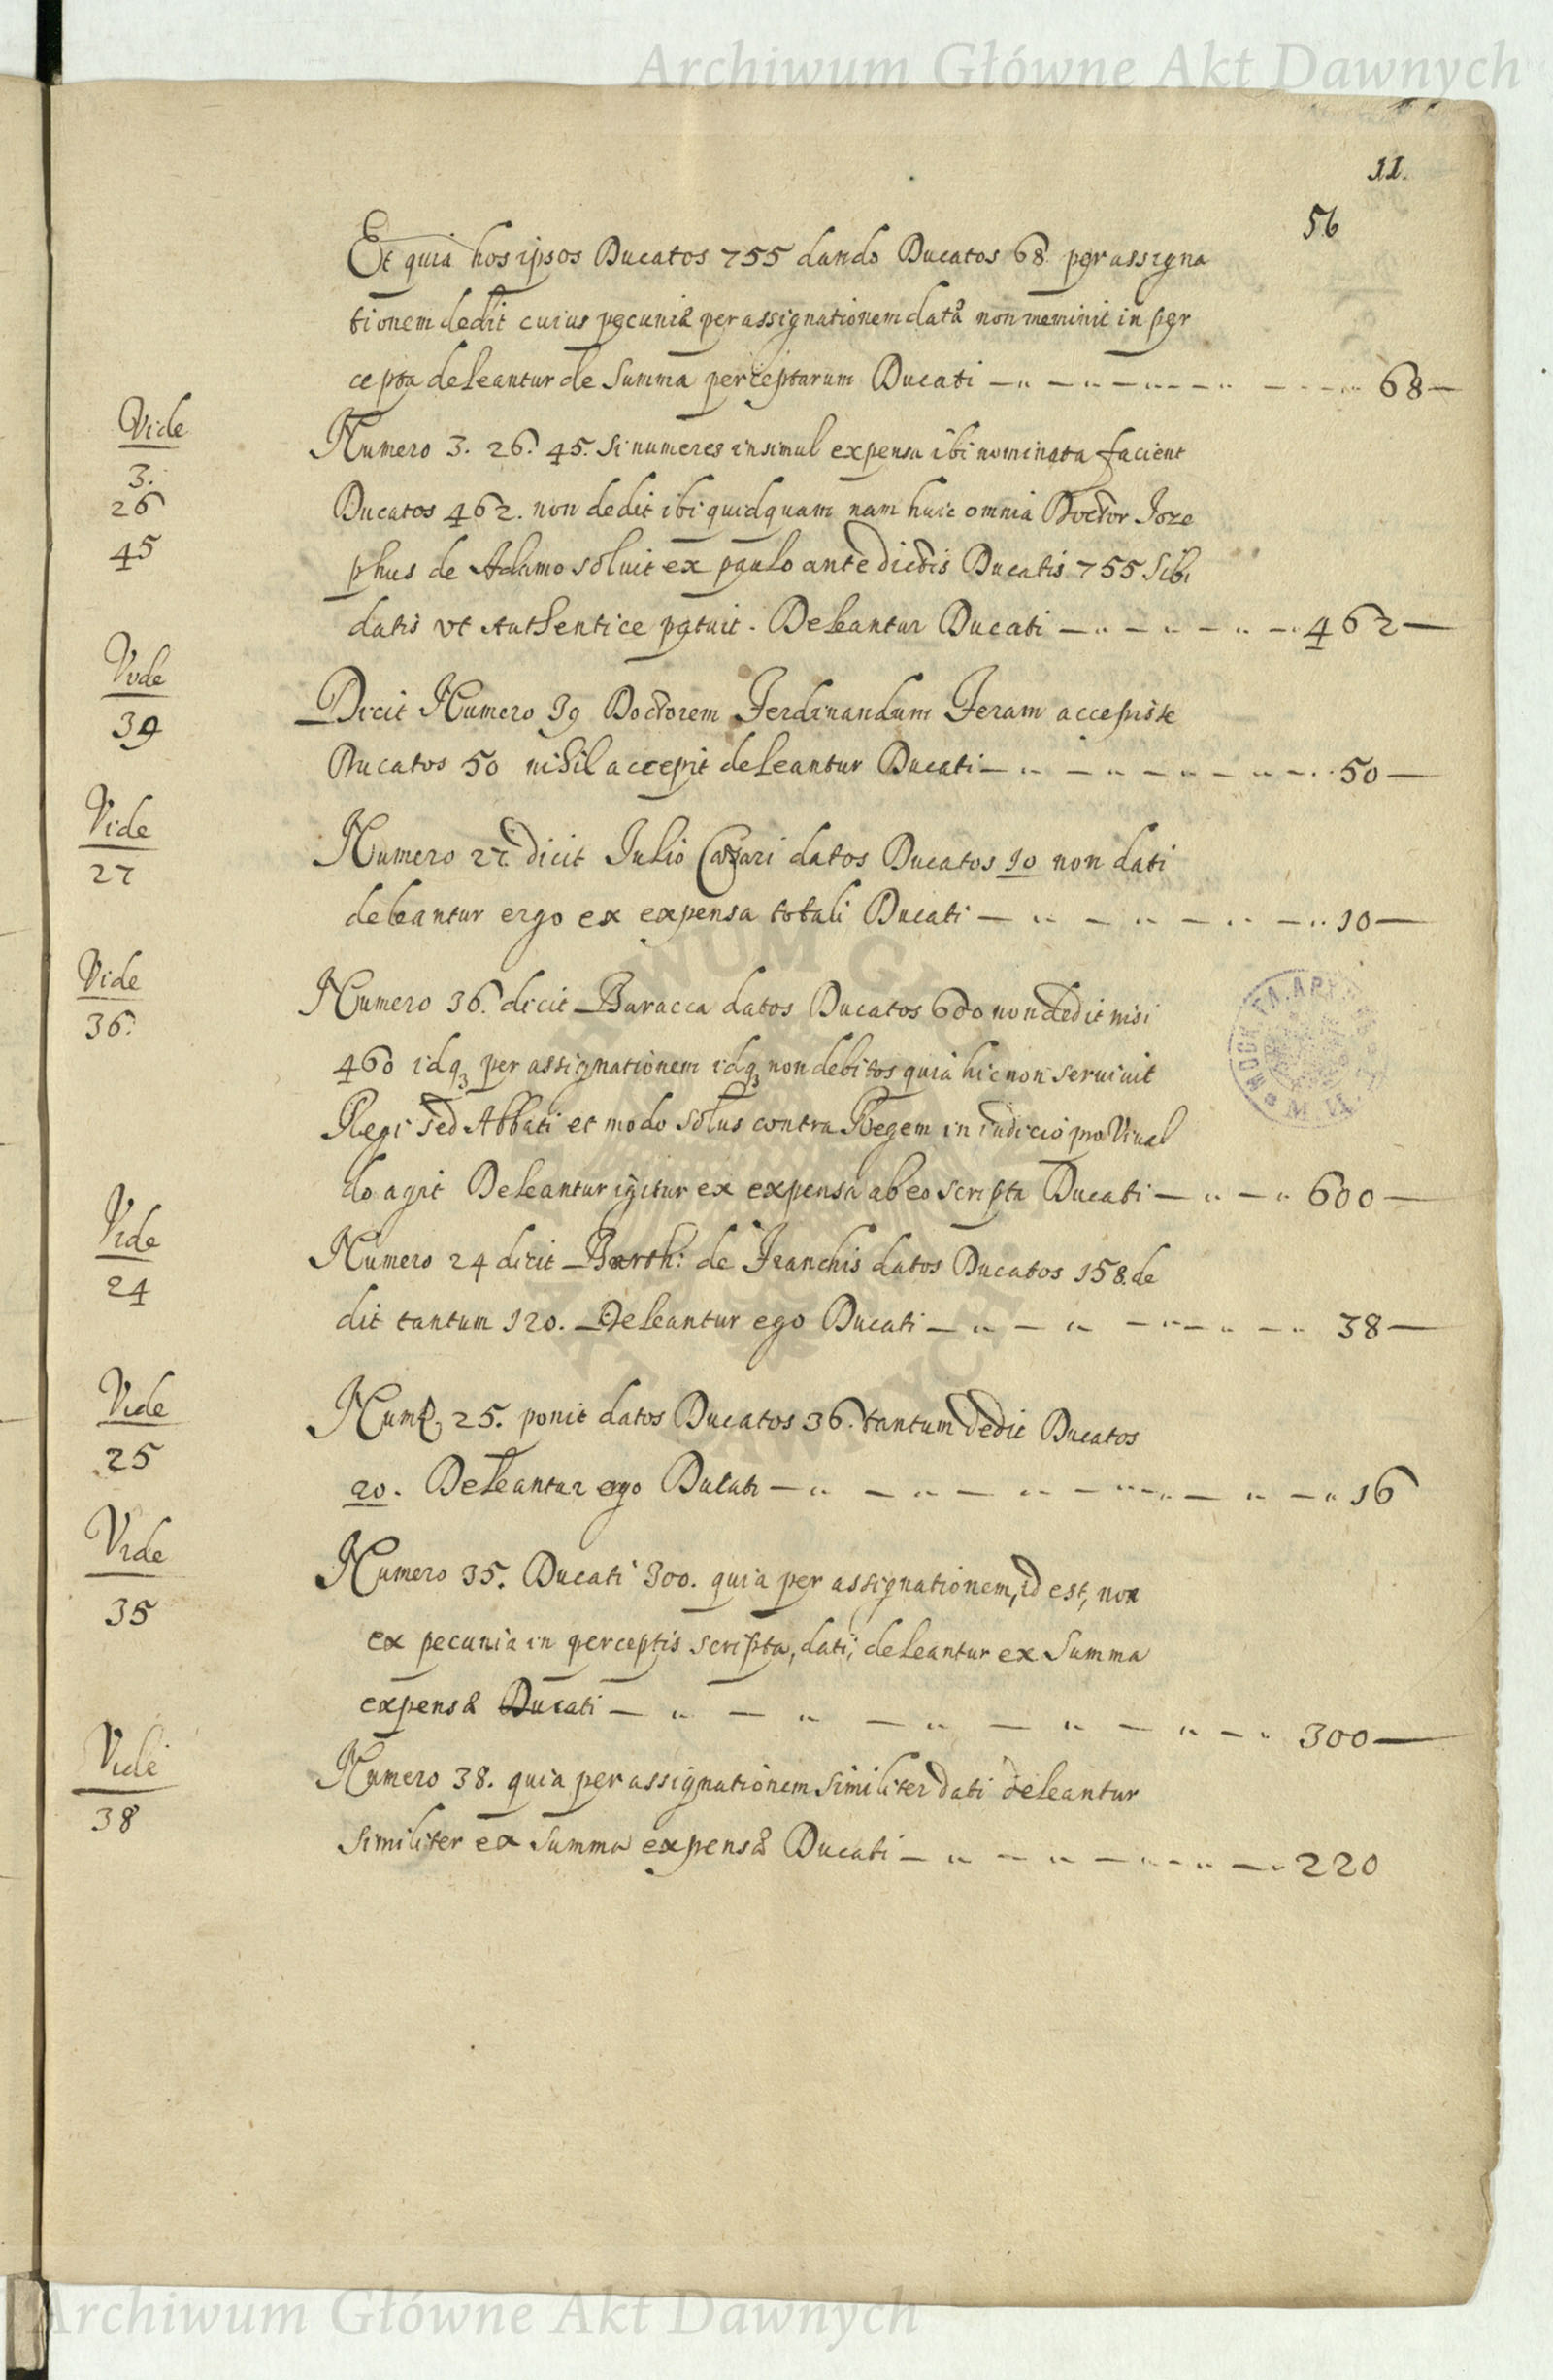 Archiwum Główne Akt Dawnych
11.
56
Et quia hos ipsos Ducatos 755 dando Ducatos 68 per assigna
tionem dedit cuius pecuniæ per assignationem datæ non meminit in per
cepta deleantur de Summa perceptarum Ducati 68
Vide
3.
26
45
Numero 3. 26. 45. Si numeres insimul expensa ibi nominata facient
Ducatos 462. non dedit ibi quidquam nam huic omnia Doctor Joze
phus de Adamo soluit ex paulo ante dictis Ducatis 755 Sibi
datis vt Authentice patuit. Deleantur Ducati 462
Vide
39
Dicit Numero 39 Doctorem Ferdinandum Feram accepisse
Ducatos 50 nihil accepit deleantur Ducati 50
Vide
27
Numero 27. dicit Julio Cæsari datos Ducatos 10 non dati
deleantur ergo ex expensa totali Ducati 10
Vide
36.
Numero 36. dicit Baracca datos Ducatos 600 non dedit nisi
460 idq3 per assignationem idq3 non debitos quia hic non seruiuit
Regi sed Abbati et modo solus contra Regem in iudicio pro Viual
do agit Deleantur igitur ex expensa ab eo scripta Ducati 600
Vide
24
Numero 24 dicit Barth: de Franchis datos Ducatos 158. de
dit tantum 120. Deleantur ego Ducati 38
Vide
25
25. ponit datos Ducatos 36. tantum dedit Ducatos
20. Deleantur ergo Ducati 16
Vide
35
Numero 35. Ducati 300. quia per assignationem, id est, non
ex pecunia in perceptis scripta, dati, deleantur ex Summa
expensæ Ducati 300
Vide
38
Numero 38. quia per assignationem Similiter dati deleantur
Similiter ex Summa expensæ Ducati 220
Archiwum Główne Akt Dawnych